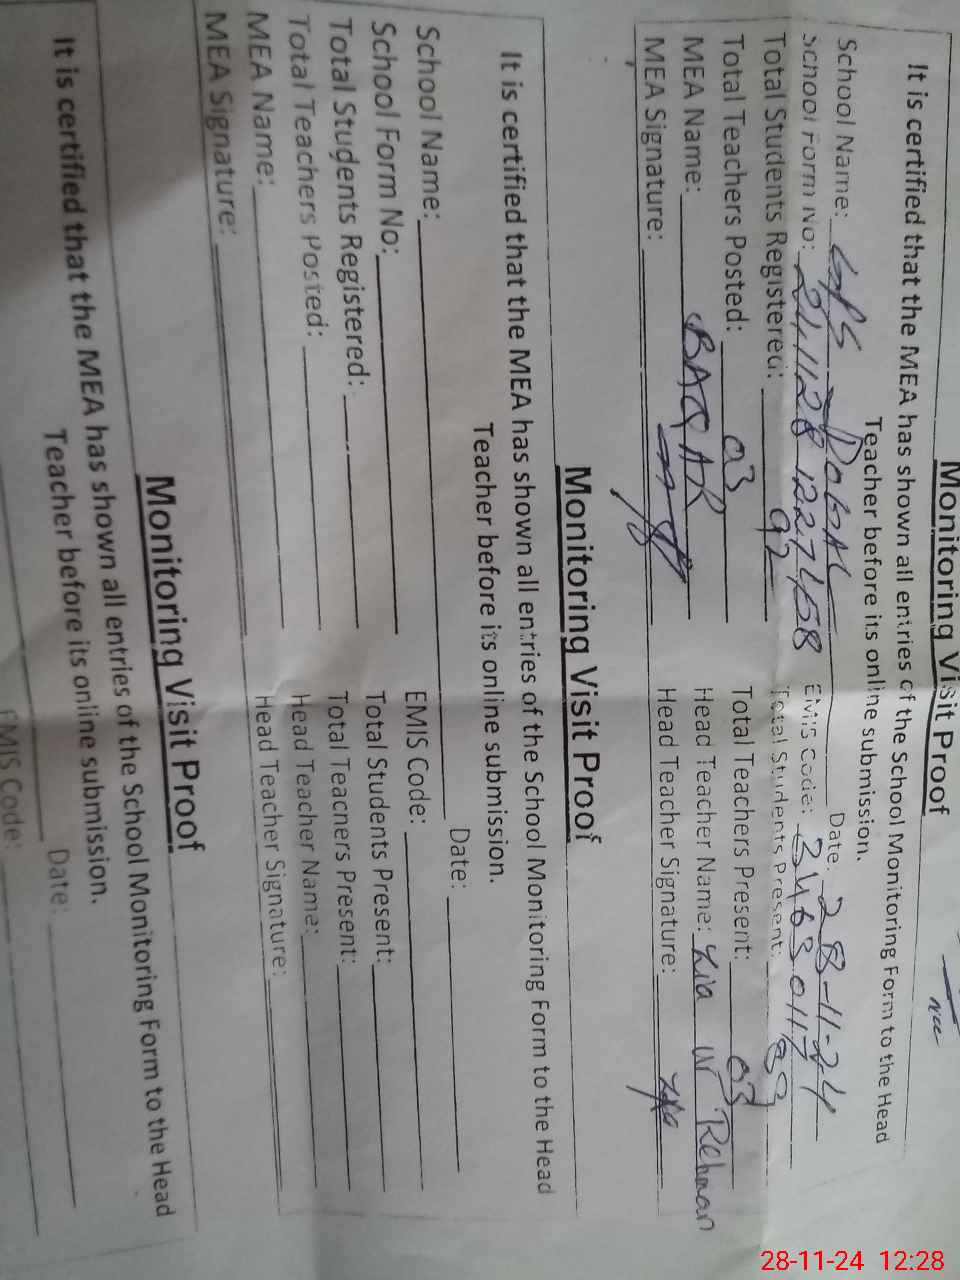 Monitoring Visit Proof
It is certified that the MEA has shown all entries of the School Monitoring Form to the Head
Teacher before its online submission.
School Name: GPS Date: 28-11-24
School Form No: 241128 1227468 EMIS Code: 34630117
Total Students Registered: 92 Total Students Present: 89
Total Teachers Posted: 03 Total Teachers Present: 03
MEA Name: BAQAR Head Teacher Name: Zia Ur Rehman
MEA Signature: Head Teacher Signature:
Monitoring Visit Proof
It is certified that the MEA has shown all entries of the School Monitoring Form to the Head
Teacher before its online submission.
School Name: Date:
School Form No: EMIS Code:
Total Students Registered: Total Students Present:
Total Teachers Posted: Total Teachers Present:
MEA Name: Head Teacher Name:
MEA Signature: Head Teacher Signature:
Monitoring Visit Proof
It is certified that the MEA has shown all entries of the School Monitoring Form to the Head
Teacher before its online submission.
Date:
EMIS Code:
28-11-24 12:28